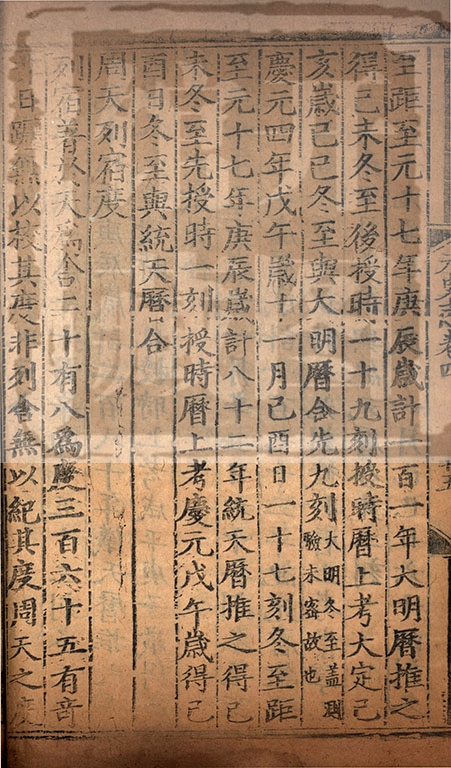 元史志卷四
十五
至距至元十七年庚辰歲計一百一年大明曆推之
得己未冬至後授時一十九刻授時曆上考大定己
亥歲己巳冬至與大明曆合先九刻大明冬至蓋測驗未密故也
慶元四年戊午歲十一月己酉日一十七刻冬至距
至元十七年庚辰歲計八十二年統天曆推之得己
未冬至先授時一刻授時曆上考慶元戊午歲得己
酉日冬至與統天曆合
周天列宿度
列宿著於天為舍二十有八為度三百六十五有奇
非日躔無以校其度非列舍無以紀其度周天之度